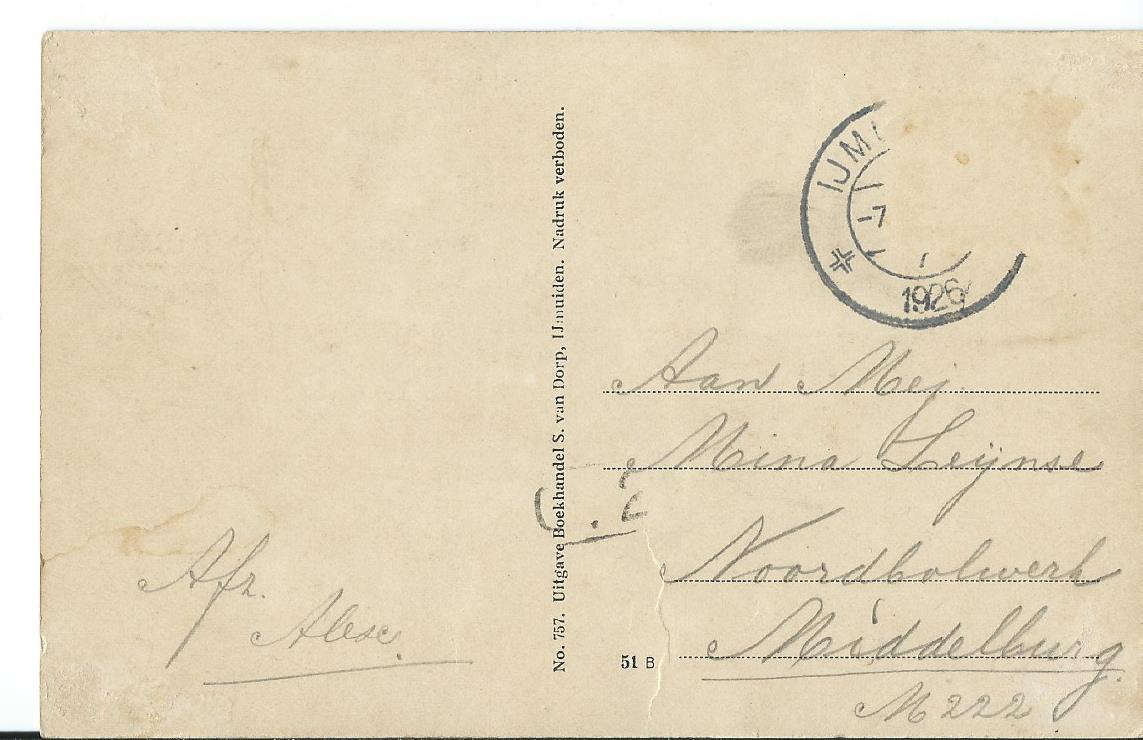 Afz.
Alex.
No. 757. Uitgave Boekhandel S. van Dorp, IJmuiden. Nadruk verboden.
IJM
-7
1926
Aan Mej.
Mina Leijnse
Noordbolwerk
Middelburg.
M 222
51 B